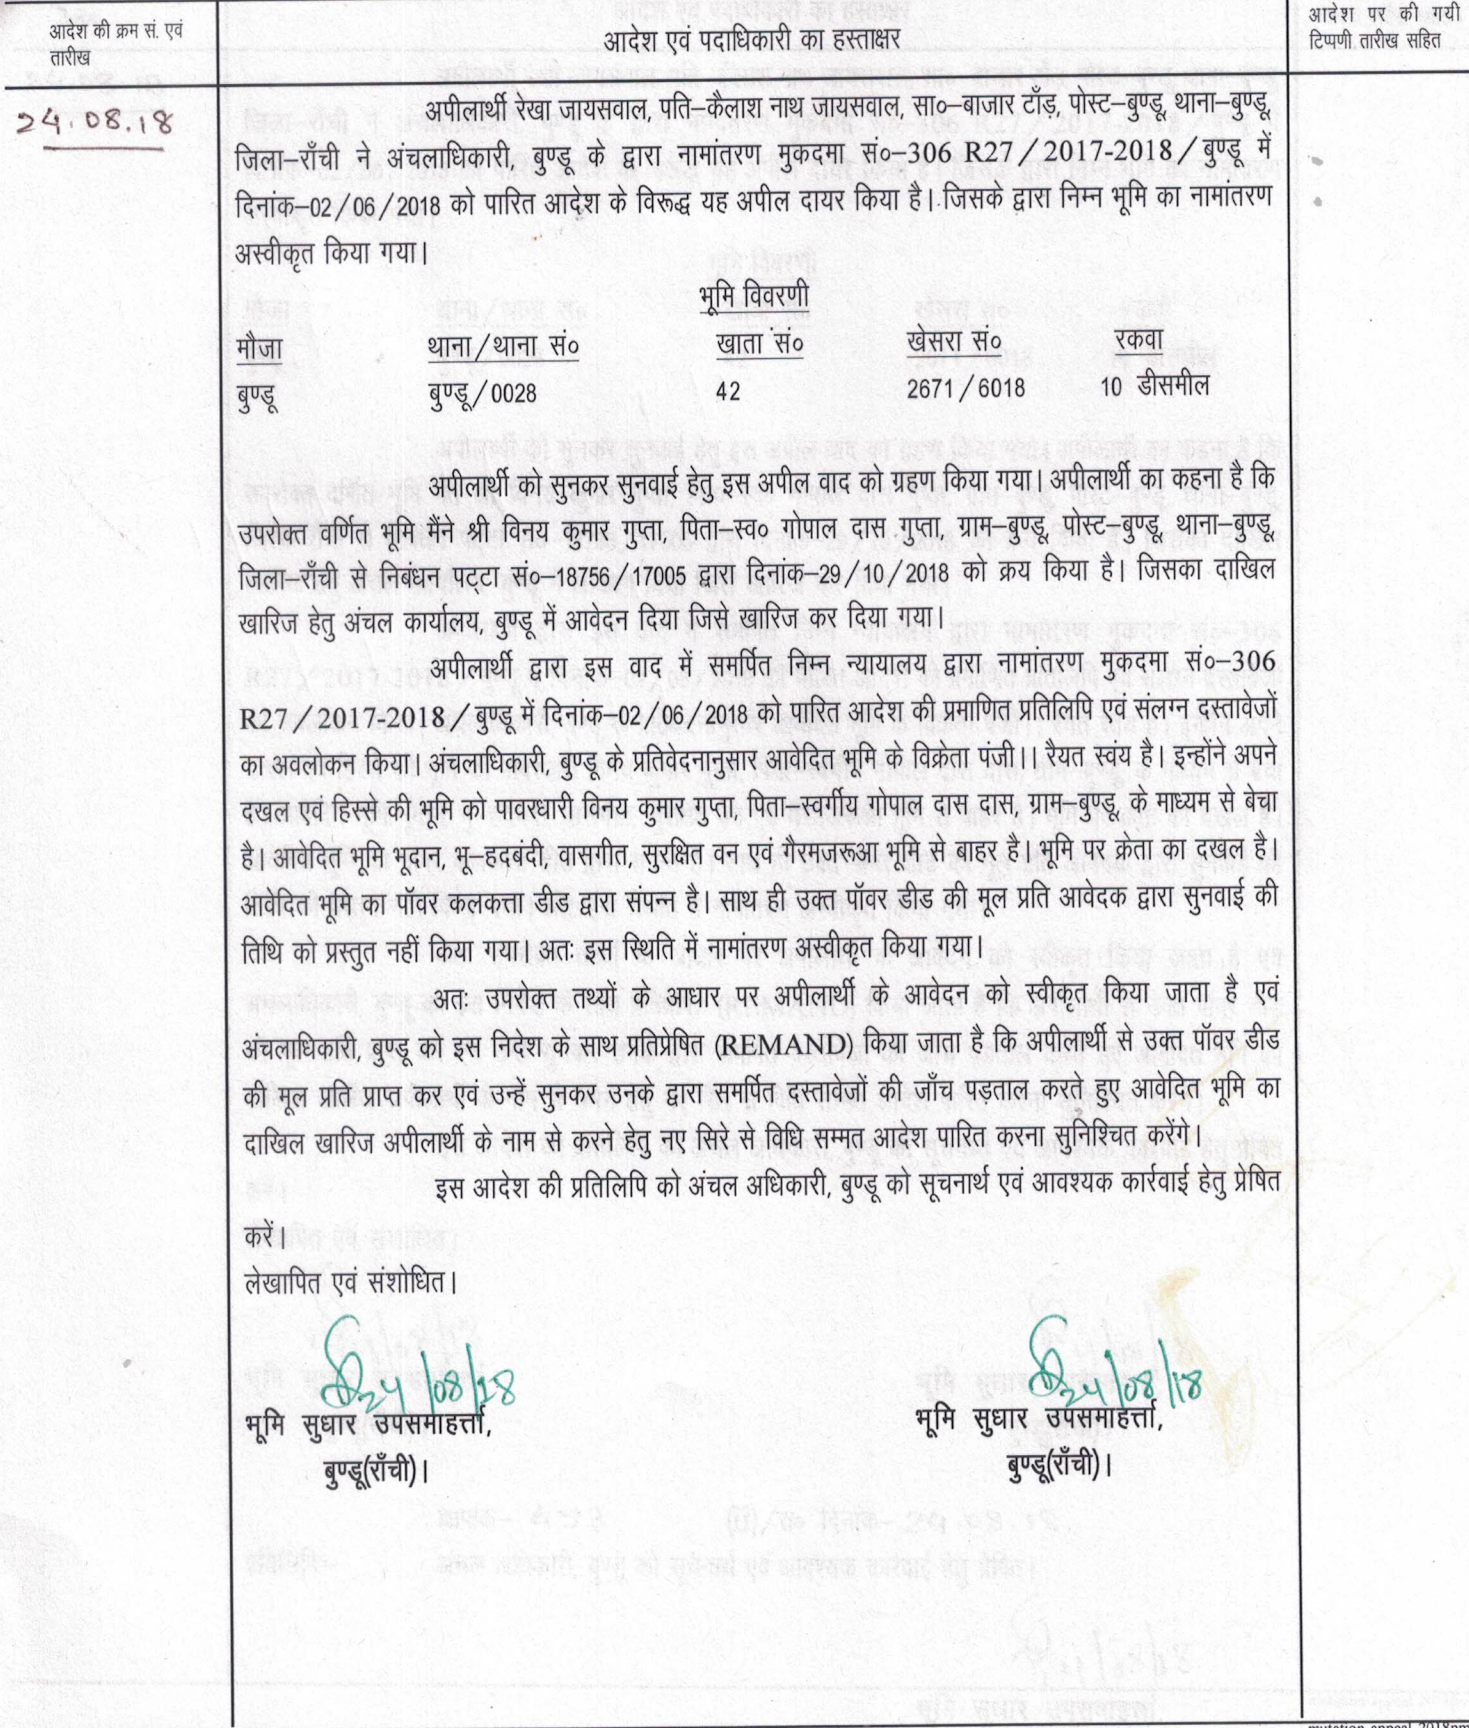 आदेश की क्रम सं. एवं
तारीख
आदेश एवं पदाधिकारी का हस्ताक्षर
आदेश पर की गयी
टिप्पणी तारीख सहित
24.08.18
अपीलार्थी रेखा जायसवाल, पति–कैलाश नाथ जायसवाल, सा०–बाजार टाँड़, पोस्ट–बुण्डू, थाना–बुण्डू,
जिला–राँची ने अंचलाधिकारी, बुण्डू के द्वारा नामांतरण मुकदमा सं०–306 R27/2017-2018/बुण्डू में
दिनांक–02/06/2018 को पारित आदेश के विरूद्ध यह अपील दायर किया है। जिसके द्वारा निम्न भूमि का नामांतरण
अस्वीकृत किया गया।
भूमि विवरणी
मौजा थाना/थाना सं० खाता सं० खेसरा सं० रकवा
बुण्डू बुण्डू/0028 42 2671/6018 10 डीसमील
अपीलार्थी को सुनकर सुनवाई हेतु इस अपील वाद को ग्रहण किया गया। अपीलार्थी का कहना है कि
उपरोक्त वर्णित भूमि मैंने श्री विनय कुमार गुप्ता, पिता–स्व० गोपाल दास गुप्ता, ग्राम–बुण्डू, पोस्ट–बुण्डू, थाना–बुण्डू,
जिला–राँची से निबंधन पट्टा सं०–18756/17005 द्वारा दिनांक–29/10/2018 को क्रय किया है। जिसका दाखिल
खारिज हेतु अंचल कार्यालय, बुण्डू में आवेदन दिया जिसे खारिज कर दिया गया।
अपीलार्थी द्वारा इस वाद में समर्पित निम्न न्यायालय द्वारा नामांतरण मुकदमा सं०–306
R27/2017-2018/बुण्डू में दिनांक–02/06/2018 को पारित आदेश की प्रमाणित प्रतिलिपि एवं संलग्न दस्तावेजों
का अवलोकन किया। अंचलाधिकारी, बुण्डू के प्रतिवेदनानुसार आवेदित भूमि के विक्रेता पंजी।। रैयत स्वंय है। इन्होंने अपने
दखल एवं हिस्से की भूमि को पावरधारी विनय कुमार गुप्ता, पिता–स्वर्गीय गोपाल दास दास, ग्राम–बुण्डू, के माध्यम से बेचा
है। आवेदित भूमि भूदान, भू–हदबंदी, वासगीत, सुरक्षित वन एवं गैरमजरूआ भूमि से बाहर है। भूमि पर क्रेता का दखल है।
आवेदित भूमि का पॉवर कलकत्ता डीड द्वारा संपन्न है। साथ ही उक्त पॉवर डीड की मूल प्रति आवेदक द्वारा सुनवाई की
तिथि को प्रस्तुत नहीं किया गया। अतः इस स्थिति में नामांतरण अस्वीकृत किया गया।
अतः उपरोक्त तथ्यों के आधार पर अपीलार्थी के आवेदन को स्वीकृत किया जाता है एवं
अंचलाधिकारी, बुण्डू को इस निदेश के साथ प्रतिप्रेषित (REMAND) किया जाता है कि अपीलार्थी से उक्त पॉवर डीड
की मूल प्रति प्राप्त कर एवं उन्हें सुनकर उनके द्वारा समर्पित दस्तावेजों की जाँच पड़ताल करते हुए आवेदित भूमि का
दाखिल खारिज अपीलार्थी के नाम से करने हेतु नए सिरे से विधि सम्मत आदेश पारित करना सुनिश्चित करेंगे।
इस आदेश की प्रतिलिपि को अंचल अधिकारी, बुण्डू को सूचनार्थ एवं आवश्यक कार्रवाई हेतु प्रेषित
करें।
लेखापित एवं संशोधित।
24/08/18 24/08/18
भूमि सुधार उपसमाहर्त्ता, भूमि सुधार उपसमाहर्त्ता,
बुण्डू(राँची)। बुण्डू(राँची)।